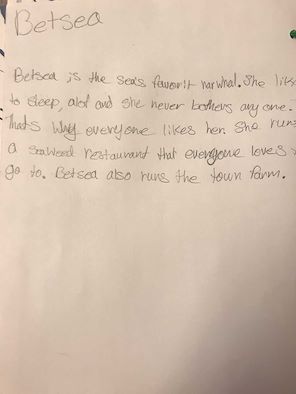 Betsea
Betsea is the sea's favorit narwhal. She like
to sleep, alot and she never bothers any one.
Thats why everyone likes her. She runs
a seaweed restaurant that everyone loves
go to. Betsea also runs the town farm.